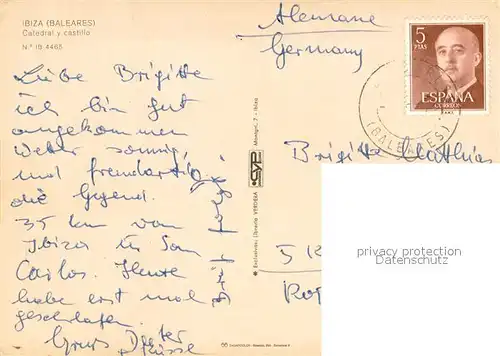 IBIZA (BALEARES)
Catedral y castillo
N.º IB 4465
Liebe Brigitte
ich bin gut
angekommen
Wetter sonnig,
und fremdartig
die Gegend.
35 km von
Ibiza in San
Carlos. Heute
habe erst mal
geschlafen.
Gruss Dieter
Küsse
Alemane
Germany
5
PTAS
ESPAÑA
CORREOS
(BALEARES)
Brigitte Mathias
5 K
privacy protection
Datenschutz